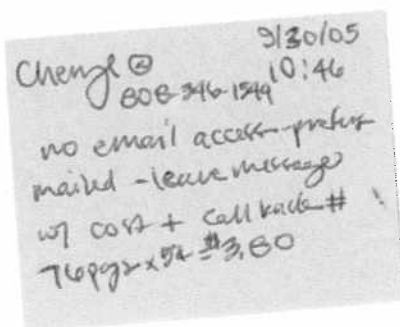 9/30/05
Cheryl @ 10:46
808-346-1549
no email access-prefers
mailed - leave message
w/ cost + call back #
76pgs x 5¢ = $3.80